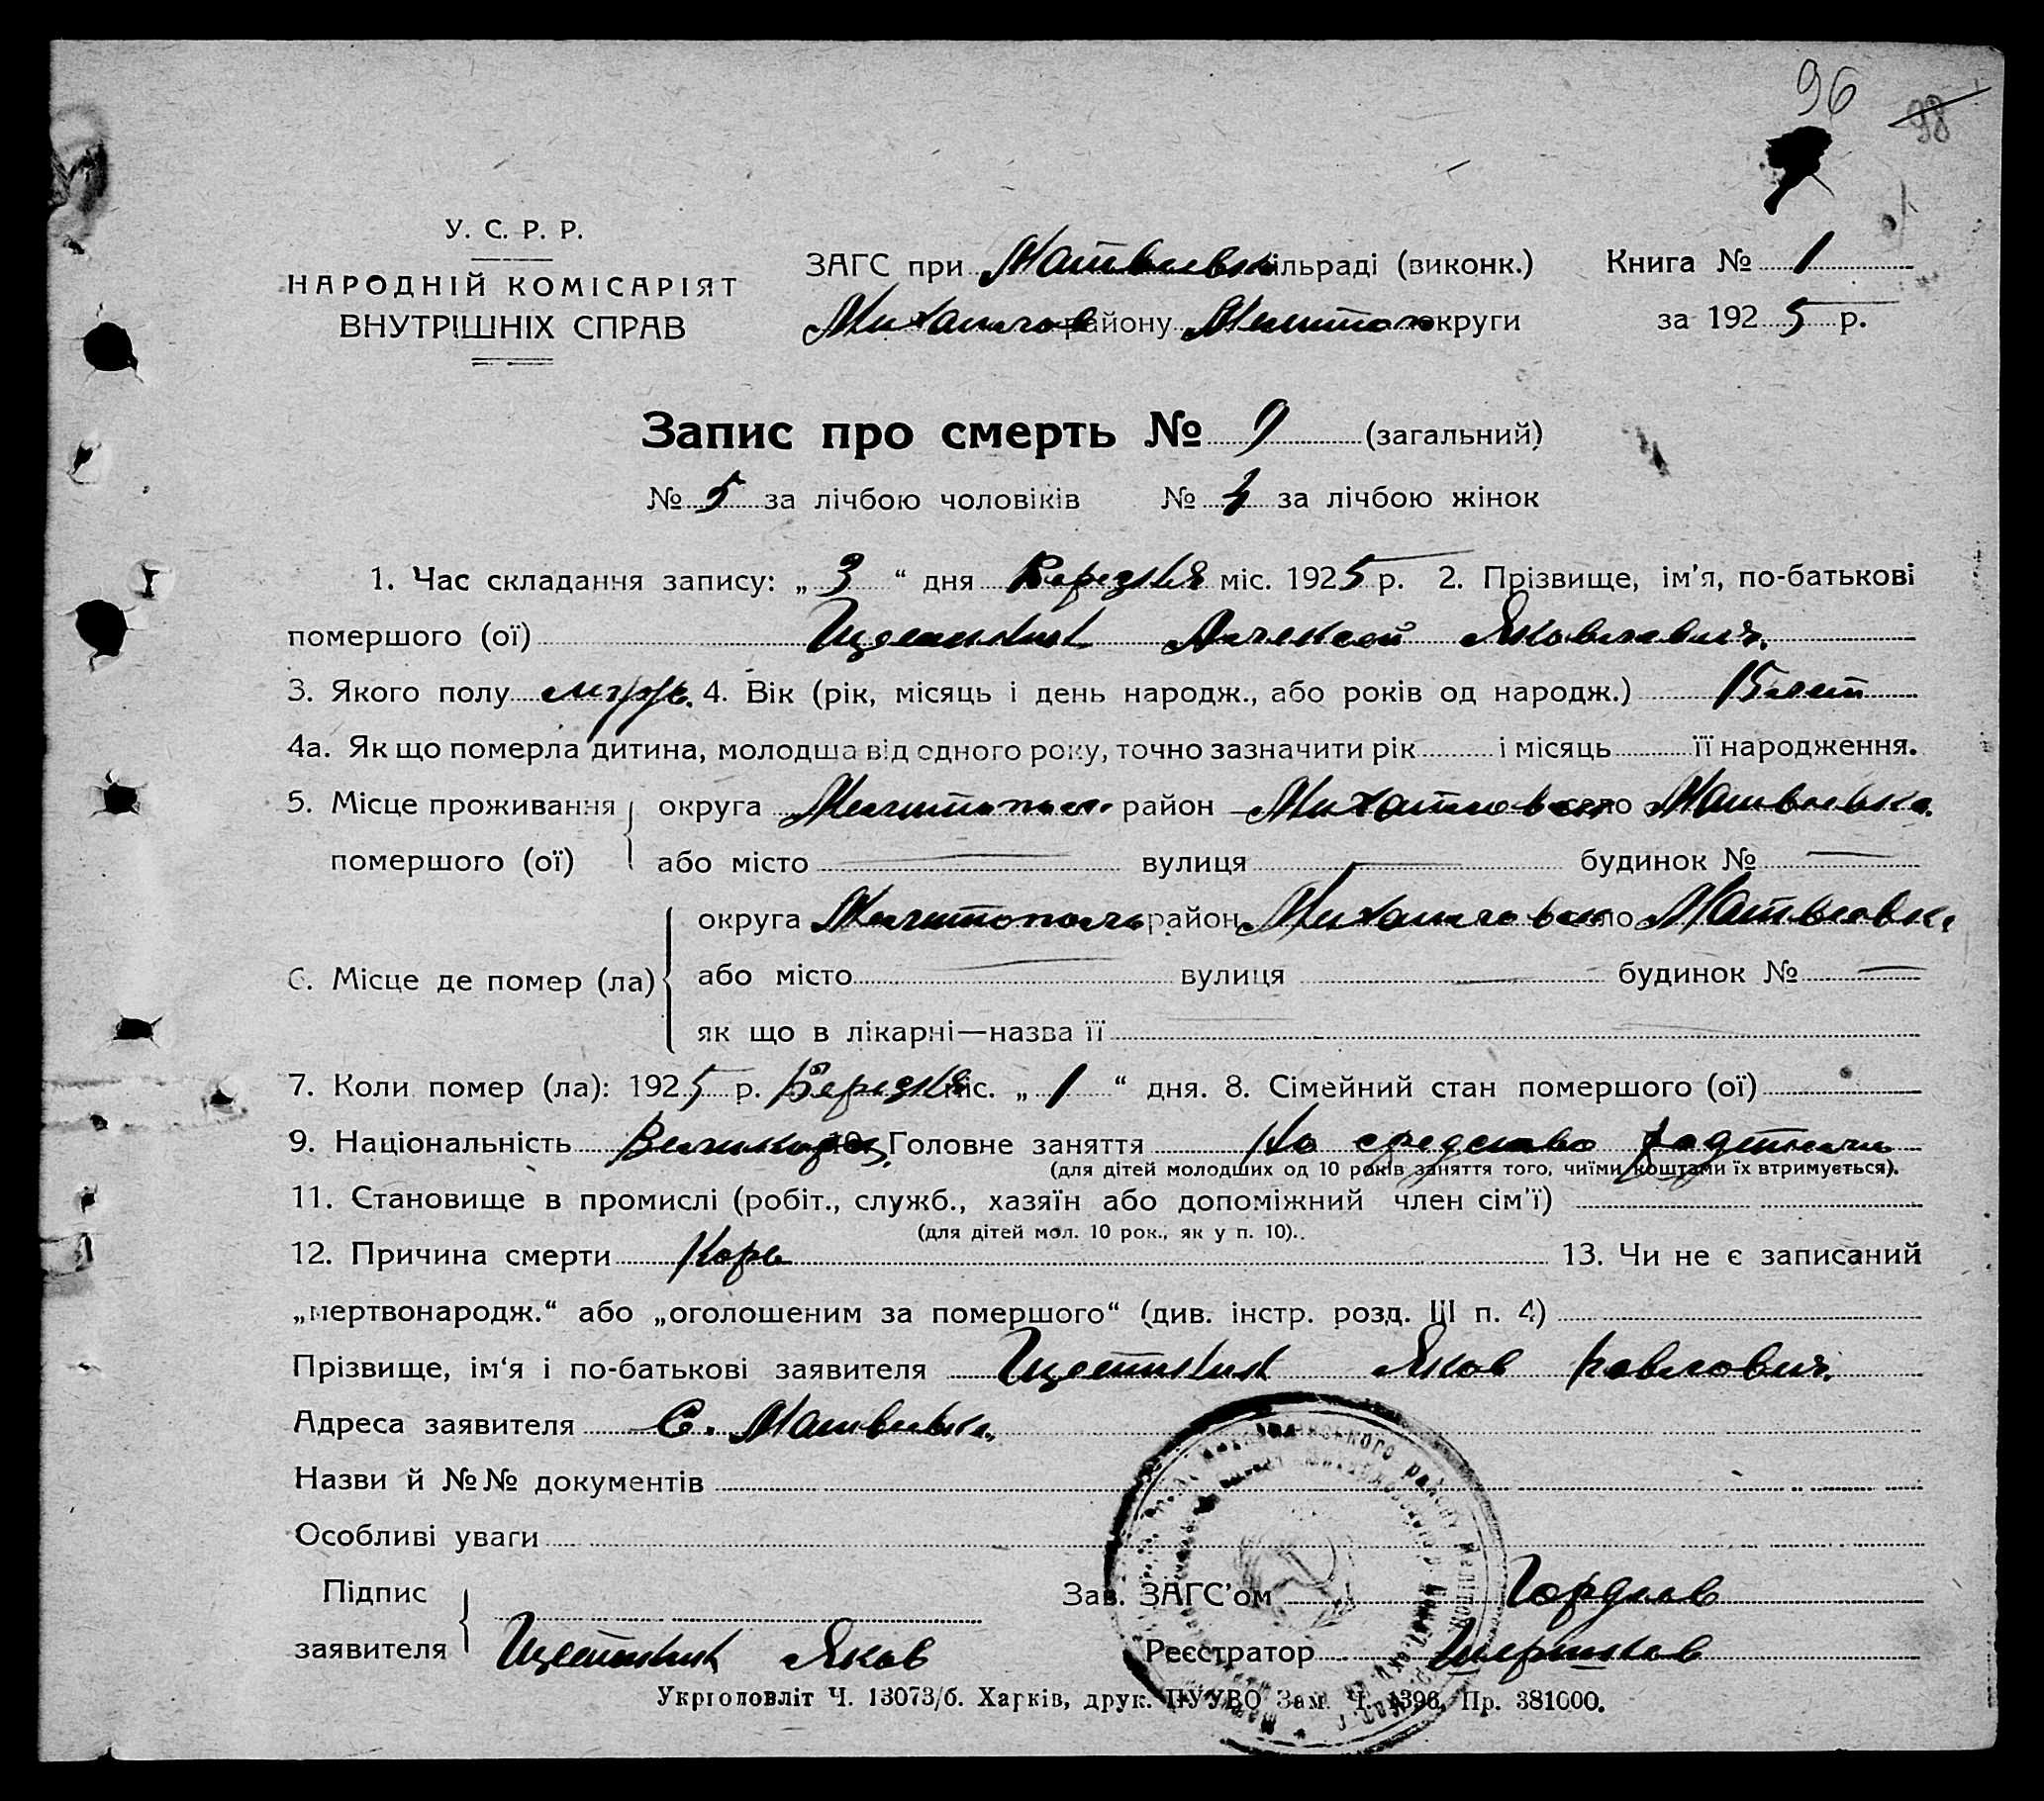 96 98
У. С. Р. Р.
НАРОДНІЙ КОМІСАРІЯТ
ВНУТРІШНІХ СПРАВ
ЗАГС при Матвеевк ільраді (виконк.) Книга № 1
Михайлов району Мелитоп округи за 1925 р.
Запис про смерть № 9 (загальний)
№ 5 за лічбою чоловіків № 4 за лічбою жінок
1. Час складання запису: „ 3 “ дня Березня міс. 1925 р. 2. Прізвище, ім'я, по-батькові
помершого (ої) Щетинин Алексей Яковлевич.
3. Якого полу мужь. 4. Вік (рік, місяць і день народж., або років од народж.) 15 лет
4а. Як що померла дитина, молодша від одного року, точно зазначити рік і місяць її народження.
5. Місце проживання округа Мелитопол район Михайловск село Матвеевка
помершого (ої) або місто — вулиця — будинок № —
округа Мелитополь район Михайловск село Матвеевка
6. Місце де помер (ла) або місто — вулиця — будинок № —
як що в лікарні—назва її
7. Коли помер (ла): 1925 р. Березня міс. „ 1 “ дня. 8. Сімейний стан помершого (ої)
9. Національність Великорос 10. Головне заняття На средство
(для дітей молодших од 10 років заняття того, чиїми коштами їх втримується).
11. Становище в промислі (робіт., служб., хазяїн або допоміжний член сім'ї)
(для дітей мол. 10 рок., як у п. 10).
12. Причина смерти Корь 13. Чи не є записаний
„мертвонародж.“ або „оголошеним за помершого“ (див. інстр. розд. III п. 4)
Прізвище, ім'я і по-батькові заявителя Щетинин Яков Павлович.
Адреса заявителя С. Матвеевка
Назви й №№ документів
Особливі уваги
Підпис
заявителя Щетинин Яков
Зав. ЗАГС'ом Гордеев
Реєстратор
Укрголовліт Ч. 13073/б. Харків, друк. ПУУВО Зам. Ч. 1396. Пр. 381000.